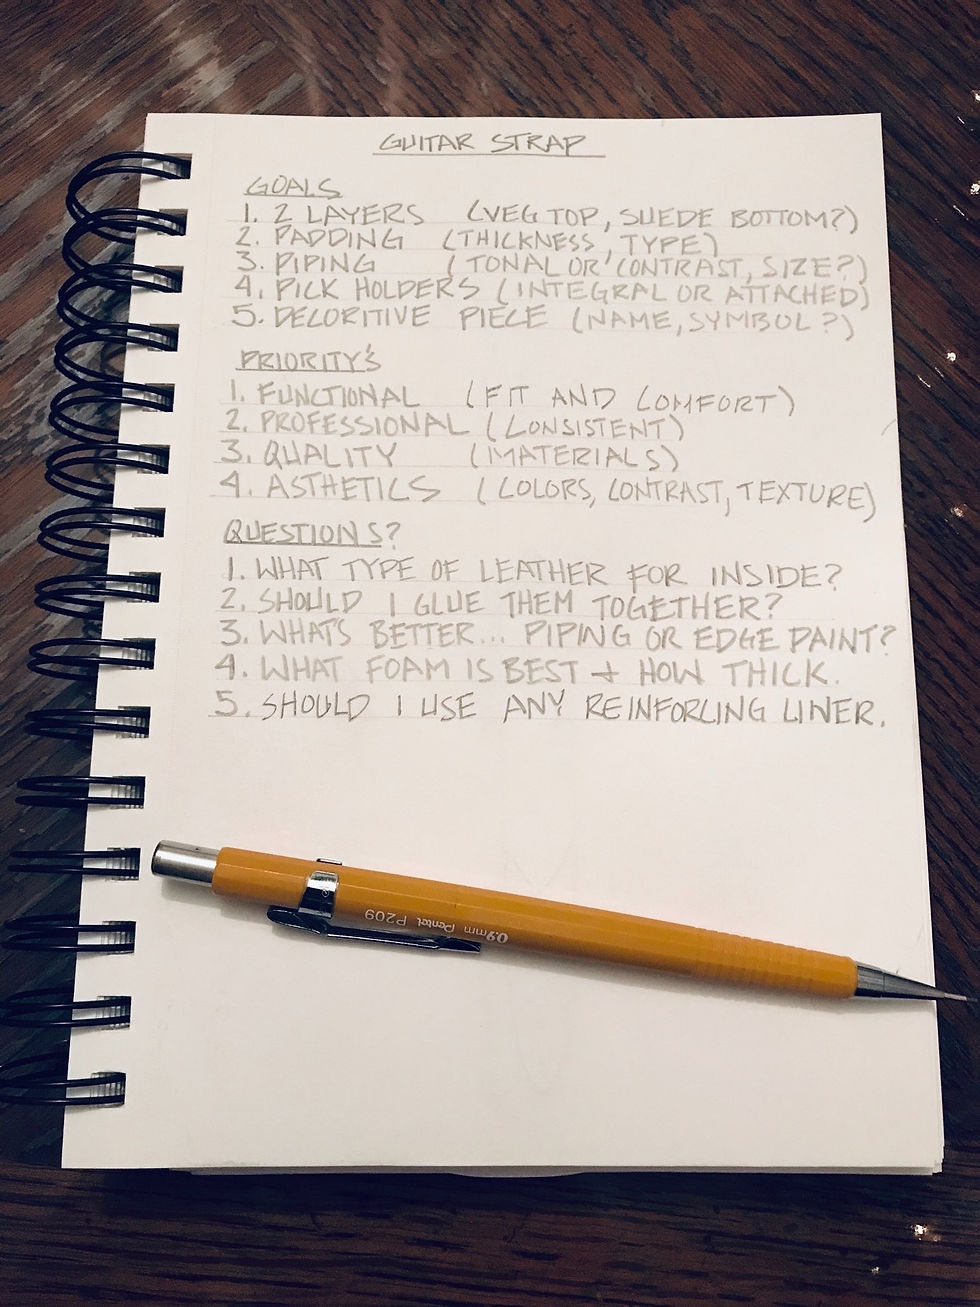 GUITAR STRAP
GOALS
1. 2 LAYERS (VEG TOP, SUEDE BOTTOM?)
2. PADDING (THICKNESS, TYPE)
3. PIPING (TONAL OR CONTRAST, SIZE?)
4. PICK HOLDERS (INTEGRAL OR ATTACHED)
5. DECORITIVE PIECE (NAME, SYMBOL?)
PRIORITY'S
1. FUNCTIONAL (FIT AND COMFORT)
2. PROFESSIONAL (CONSISTENT)
3. QUALITY (MATERIALS)
4. ASTHETICS (COLORS, CONTRAST, TEXTURE)
QUESTIONS?
1. WHAT TYPE OF LEATHER FOR INSIDE?
2. SHOULD I GLUE THEM TOGETHER?
3. WHATS BETTER... PIPING OR EDGE PAINT?
4. WHAT FOAM IS BEST + HOW THICK.
5. SHOULD I USE ANY REINFORCING LINER.
0.9mm Pentel P209